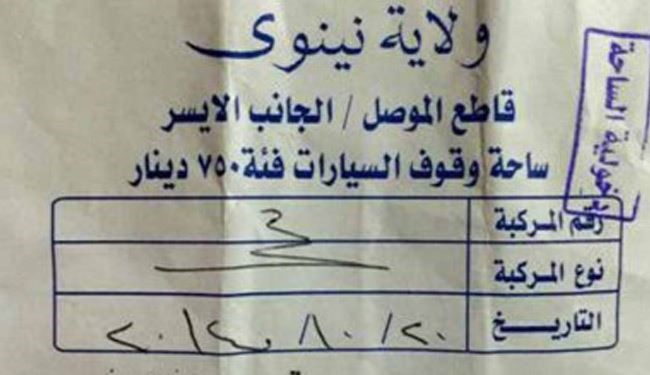 ولاية نينوى
قاطع الموصل / الجانب الايسر
ساحة وقوف السيارات فئة ٧٥٠ دينار
دخولية الساحة
رقم المركبة
نوع المركبة
التاريخ ٢٠ / ١٠ /